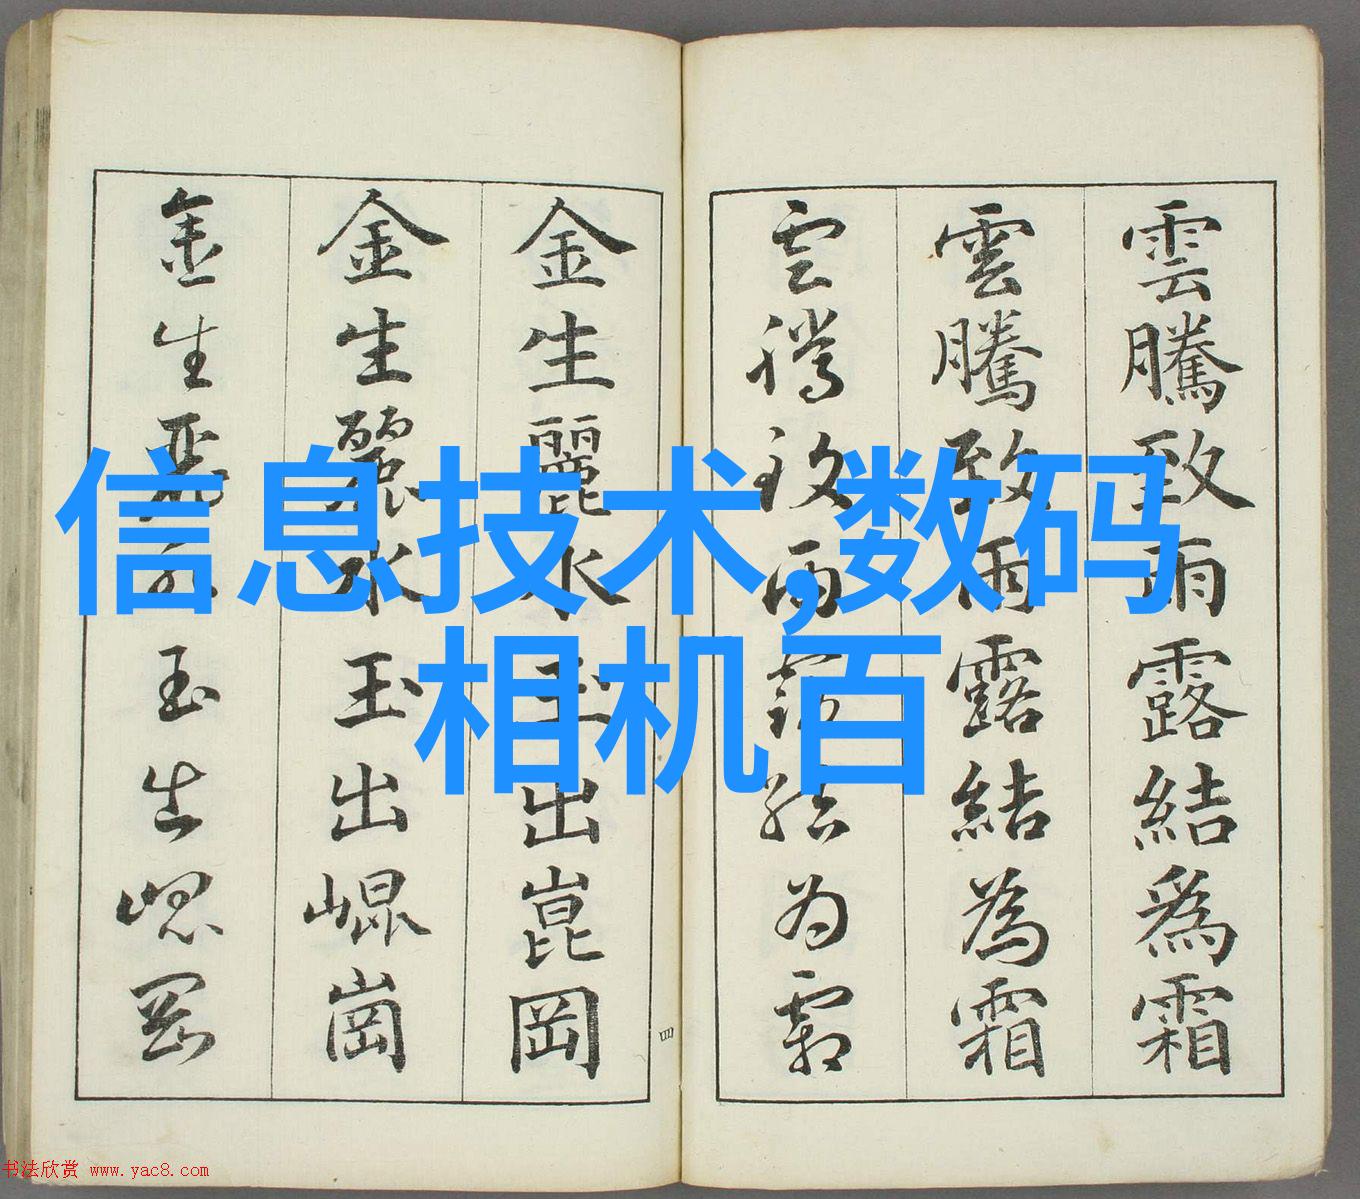 雲騰致雨露結為霜
雲騰致雨露結為霜
雲騰致雨露結为霜
金生麗水玉出崑岡
金生麗水玉出崐崗
金生麗水玉出崐岡
四
信息技术,数码
相机百
书法欣赏 www.yac8.com